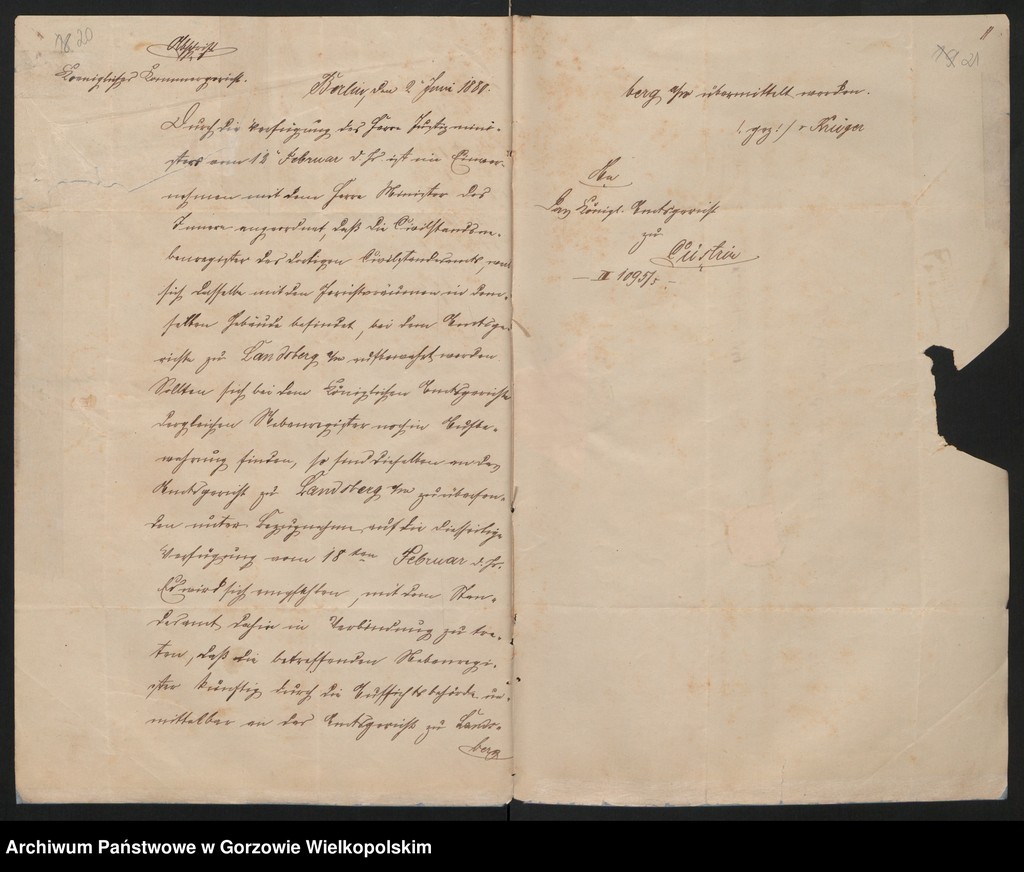 18. 20
Abschrift
Koenigliches Kammergericht.
Berlin, den 2t Juni 1880.
Durch die Verfügung des Herrn Justizmini-
sters vom 12t Februar d. Js ist im Einver-
nehmen mit dem Herrn Minister des
Innern angeordnet, daß die Civilstandsne-
benregister des dortigen Civilstandesamts, wenn
sich dasselbe mit den Gerichtsräumen in dem-
selben Gebäude befindet, bei dem Amtsge-
richte zu Landsberg a/w aufbewahrt werden.
Sollten sich bei dem Königlichen Amtsgerichte
dergleichen Nebenregister noch in Aufbe-
wahrung finden, so sind dieselben an das
Amtsgericht zu Landsberg a/w zu übersen-
den unter Bezugnahme auf die diesseitige
Verfügung vom 18ten Februar d. Js.
Es wird sich empfehlen, mit dem Stan-
desamt dahin in Verbindung zu tre-
ten, daß die betreffenden Nebenregi-
ster künftig durch die Aufsichtsbehörde un-
mittelbar an das Amtsgericht zu Lands-
berg
21
berg a/w übermittelt werden.
/. gez: / v Krüger
An
das Königl. Amtsgericht
zu
Cüstrin
III 1095/5
Archiwum Państwowe w Gorzowie Wielkopolskim